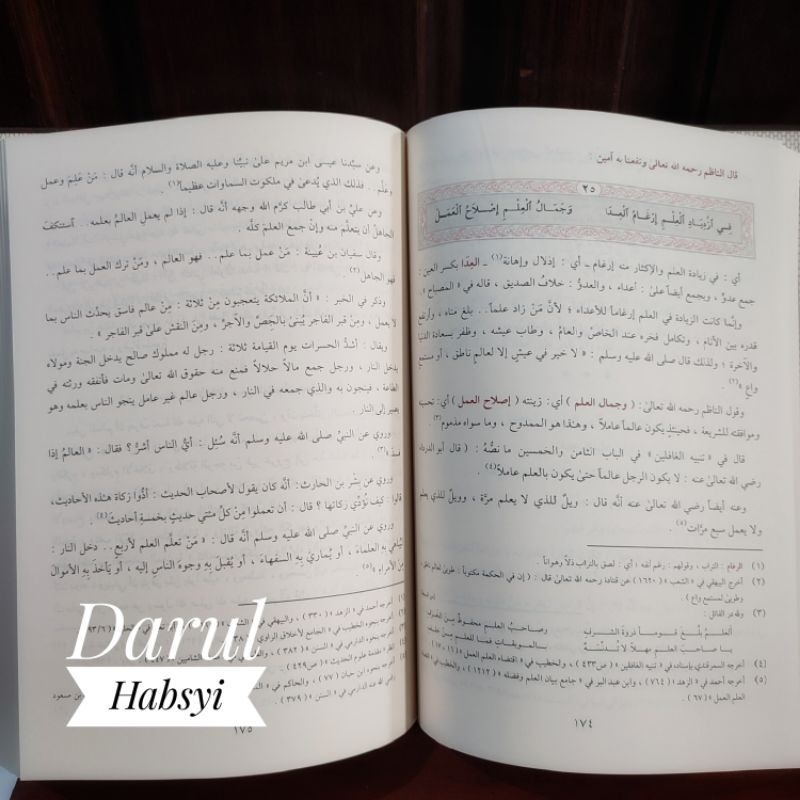 قال الناظم رحمه الله تعالى ونفعنا به آمين :
٢٥
فِي ٱزْدِيَادِ ٱلْعِلْمِ إِرْغَامُ ٱلْعِدَا وَجَمَالُ ٱلْعِلْمِ إِصْلَاحُ ٱلْعَمَلْ
أي : في زيادة العلم والإكثار منه إرغام ـ أي : إذلال وإهانة(١) ـ العِدَا بكسر العين :
جمع عدوٍّ ، ويجمع أيضاً على : أعداء ، والعدوُّ : خلافُ الصديق ، قاله في « المصباح » .
وإنَّما كانت الزيادة في العلم إرغاماً للأعداء ؛ لأنَّ مَنْ زاد علماً.. بلغ مناه ، وارتفع
قدره بين الأنام ، وتكامل فخره عند الخاصِّ والعامِّ ، وطاب عيشه ، وظفر بسعادة الدنيا
والآخرة ؛ ولذلك قال صلى الله عليه وسلم : « لا خير في عيشٍ إلا لعالم ناطق ، أو مستمع
واعٍ »(٢) .
وقول الناظم رحمه الله تعالىٰ: ( وجمال العلم ) أي: زينته ( إصلاح العمل ) أي: تحب
وموافقته للشريعة ، فحينئذٍ يكون عالماً عاملاً ، وهٰذا هو الممدوح ، وما سواه مذموم(٣) .
قال في « تنبيه الغافلين » في الباب الثامن والخمسين ما نصُّه : ( قال أبو الدرداء
رضي الله تعالىٰ عنه : لا يكون الرجل عالماً حتىٰ يكون بالعلم عاملاً )(٤) .
وعنه أيضاً رضي الله تعالىٰ عنه أنَّه قال : ويلٌ للذي لا يعلم مرَّة ، وويلٌ للذي يعلم
ولا يعمل سبع مرَّات(٥) .
(١) الرغام : التراب ، وقولهم : رغم أنفه ؛ أي : لصق بالتراب ذلاً وهواناً .
(٢) أخرج البيهقي في « الشعب » ( ١٦٦٠ ) عن قتادة رحمه الله تعالىٰ قال : ( إن في الحكمة مكتوباً : طوبىٰ لعالم ناطق ،
وطوبىٰ لمستمع واعٍ ) .
(٣) ولله در القائل :
العلم بلَّغ قوماً ذروة الشرف وصاحب العلم محفوظ من
يا صاحب العلم مهلاً لا تدنسه بالموبقات فما للعلم من خلف
(٤) أخرجه السمرقندي بإسناده في « تنبيه الغافلين » ( ص٤٣٣ ) ، والخطيب في « اقتضاء العلم العمل » ( ١٦ ، ١٧ ) .
(٥) أخرجه أحمد في « الزهد » ( ٧٦٤ ) ، وابن عبد البر في « جامع بيان العلم وفضله » ( ١٢١٢ ) ، والخطيب في « اقتضاء
العلم العمل » ( ٦٧ ) .
١٧٤
وعن سيِّدنا عيسى ابن مريم علىٰ نبيِّنا وعليه الصلاة والسلام أنَّه قال : مَنْ عَلِمَ وعمل
وعلَّم.. فذلك الذي يُدعىٰ في ملكوت السماوات عظيماً(١) .
وعن عليِّ بن أبي طالب كرَّم الله وجهه أنَّه قال : إذا لم يعمل العالمُ بعلمه.. ٱستنكفَ
الجاهلُ أن يتعلَّم منه وإنْ جمع العلمَ كلَّه .
وقال سفيان بن عُيينة : مَنْ عمل بما علم.. فهو العالم ، ومَنْ ترك العمل بما علم..
فهو الجاهل(٢) .
وذكر في الخبر : « أنَّ الملائكة يتعجبون مِنْ ثلاثة : مِنْ عالم فاسق يحدِّث الناس بما
لا يعمل ، ومِنْ قبر الفاجر يُبنىٰ بالجِصِّ والآجرِّ ، ومِنَ النقش علىٰ قبر الفاجر » .
ويقال : أشدُّ الحسرات يوم القيامة ثلاثة : رجل له مملوك صالح يدخل الجنة ومولاه
يدخل النار ، ورجل جمع مالاً حلالاً فمنع منه حقوق الله تعالىٰ ومات فأنفقه ورثته في
الطاعة ، فينجون به والذي جمعه في النار ، ورجل عالم غير عامل ينجو الناس بعلمه وهو
يصير إلى النار .
وروي عن النبيِّ صلى الله عليه وسلم أنَّه سُئِل : أيُّ الناس أشرُّ ؟ فقال : « العالمُ إذا
فسدَ »(٣) .
وروي عن بشر بن الحارث: أنَّه كان يقول لأصحاب الحديث : أدُّوا زكاة هٰذه الأحاديث،
قالوا : كيف نُؤدِّي زكاتها ؟ قال : أن تعملوا مِنْ كلِّ مئتي حديثٍ بخمسةِ أحاديثَ(٤) .
وروي عن النبيِّ صلى الله عليه وسلم أنَّه قال : « مَنْ تعلَّم العلم لأربعٍ.. دخل النار :
ليُباهي بِهِ العلماءَ ، أو يُماريَ بِهِ السفهاءَ ، أو يُقبلَ بِهِ وجوهَ الناسِ إليه ، أو يأخذَ بِهِ الأموالَ
مِنَ الأمراءِ »(٥) .
أخرجه أحمد في « الزهد » ( ٣٣٠ ) ، والبيهقي في
أخرجه بنحوه الخطيب في « الجامع لأخلاق الراوي
أخرجه بنحوه الدارمي في « السنن » ( ٣٨٢ )
« مقدمة علوم الحديث » ( ص٤٢٩ )
أخرجه بنحوه ابن حبان ( ٧٧ ) ، والحاكم في
رضي الله عنه الدارمي في « السنن » ( ٣٧٩ ) .
١٧٥
Darul
Habsyi